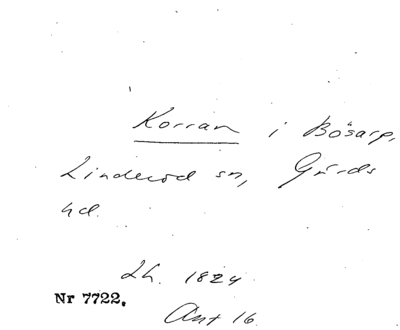 Korran i Bösarp,
Linderöd sn, Gärds
hd.
Lh. 1824
Nr 7722.
Ant 16